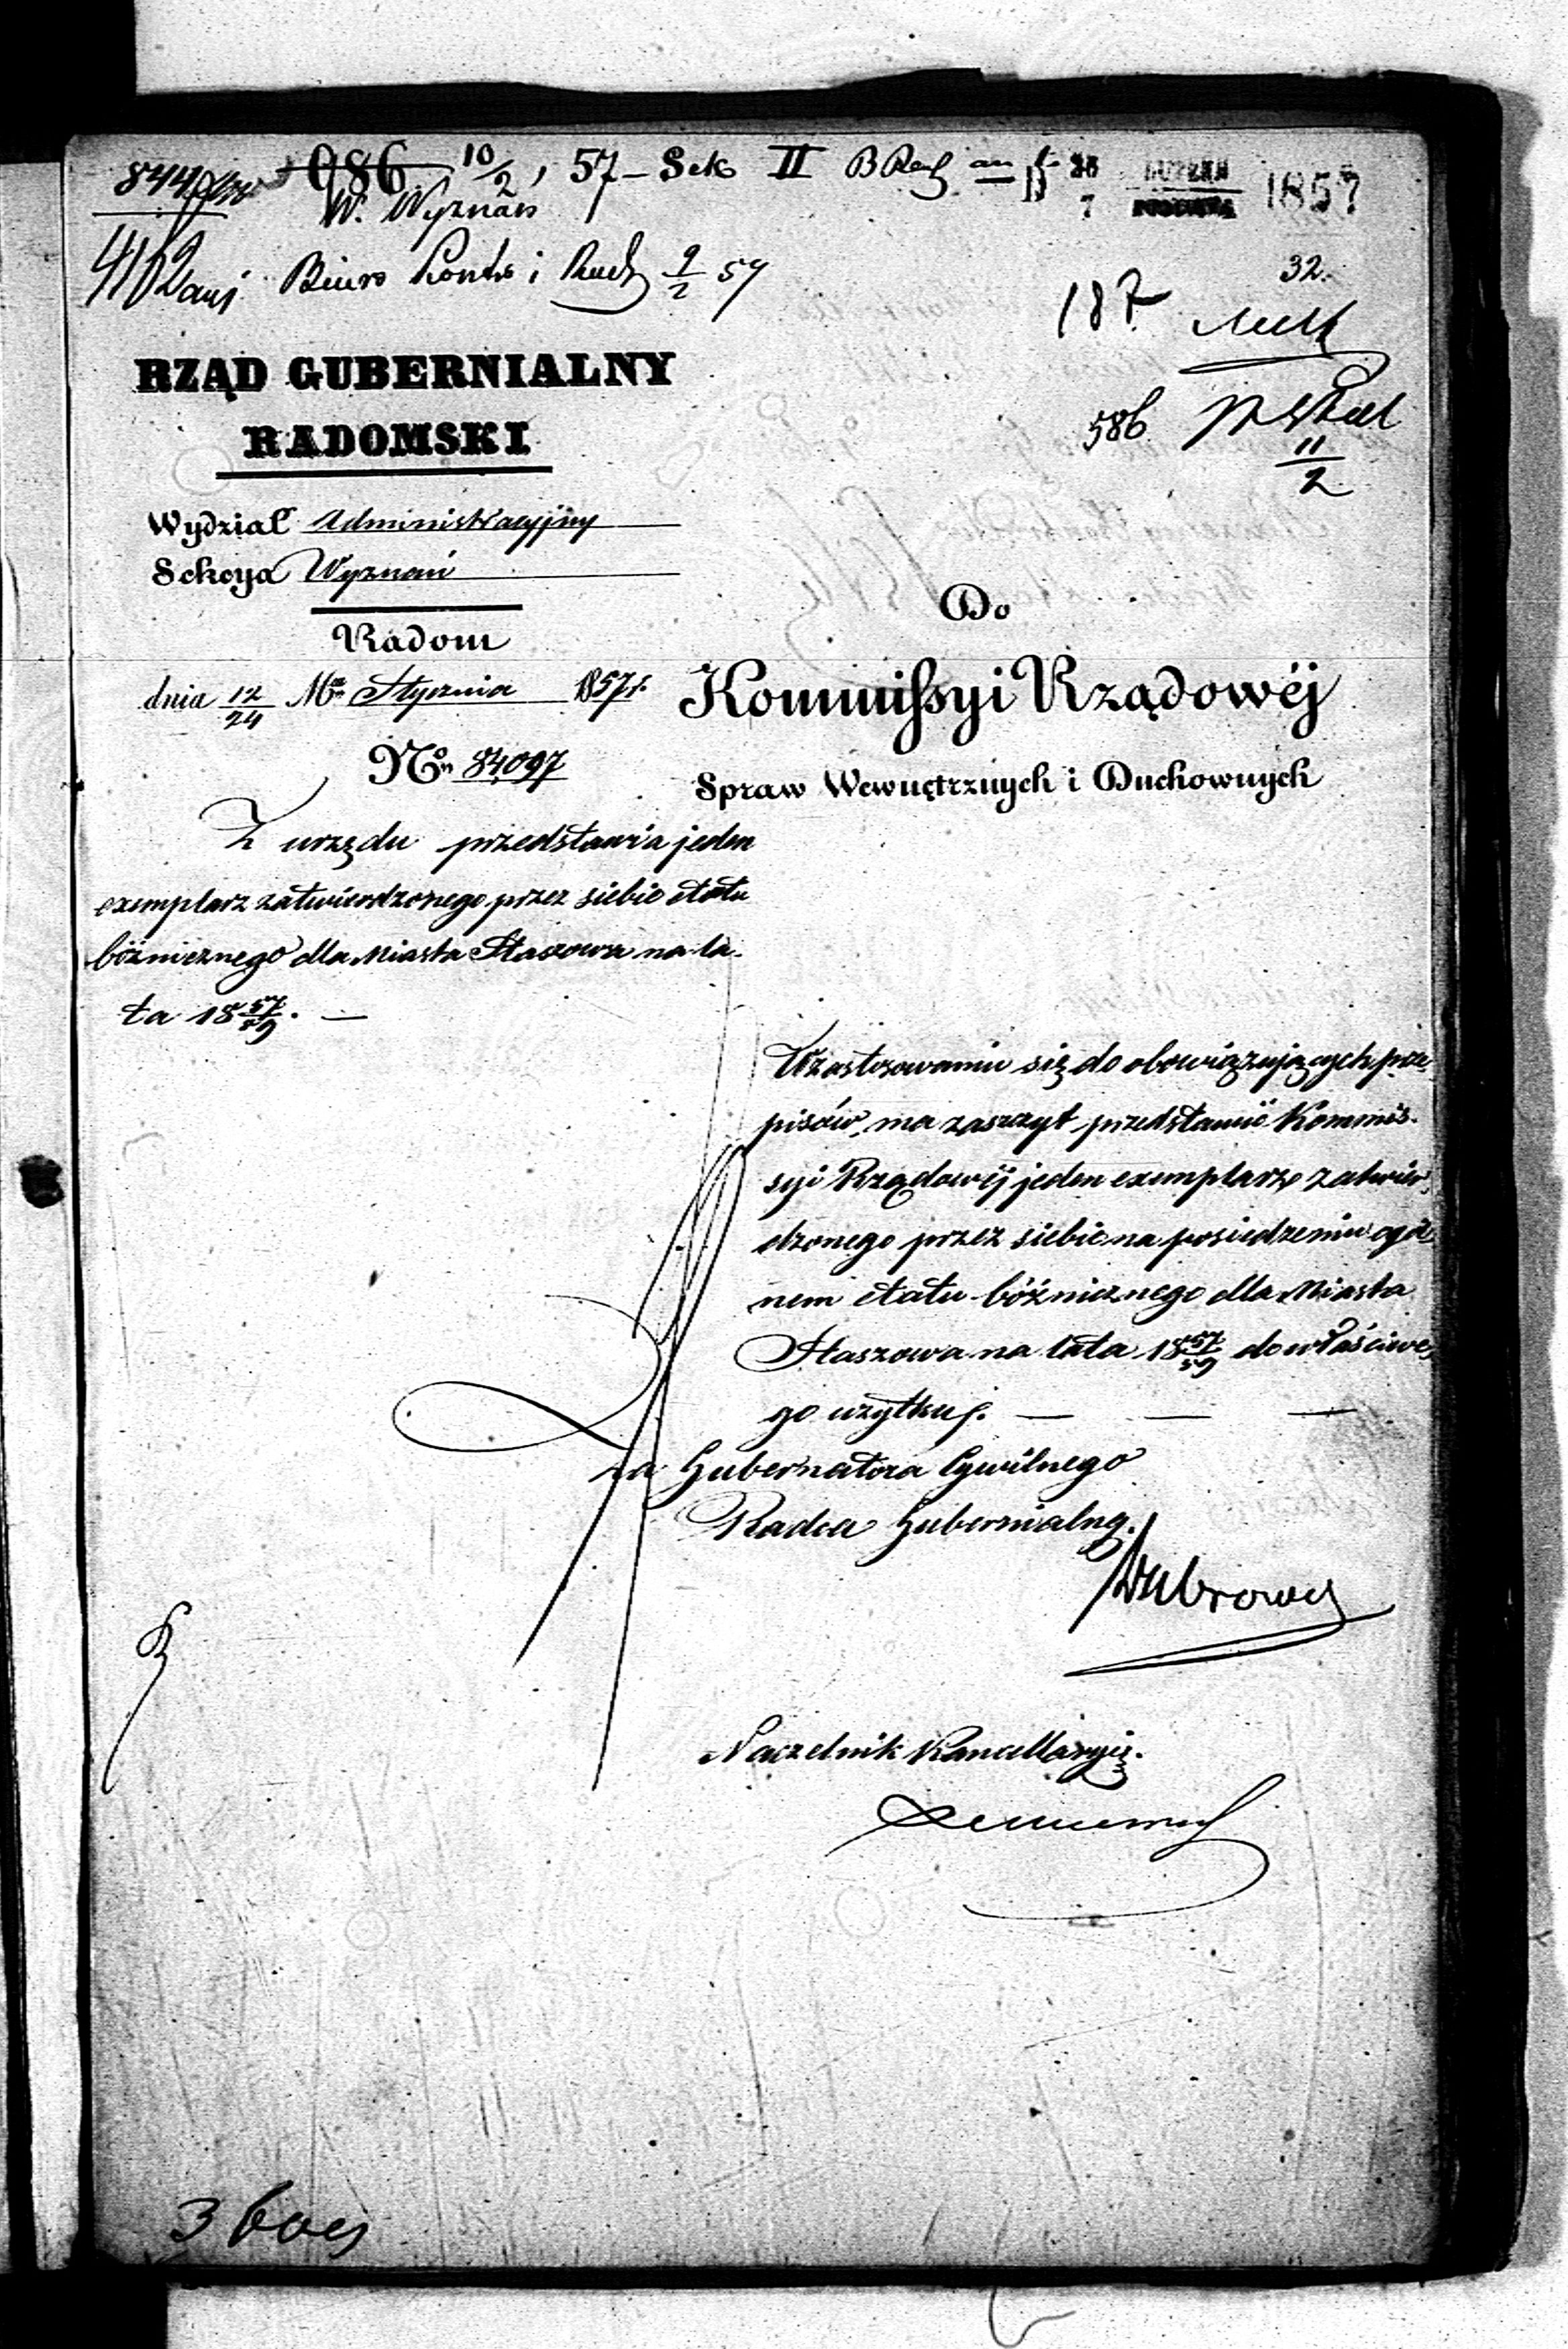 086 10/2, 57 – Sek II B Rach
W. Wyznań
1857
4102 Biuro Kontr i Rach 9/2 57
32.
187.
586
11/2
RZĄD GUBERNIALNY
RADOMSKI
Wydział Administracyjny
Sekcya Wyznań
Radom
dnia 12/24 Mca Stycznia 1857 r.
No 84097
Do
Kommissyi Rządowéj
Spraw Wewnętrznych i Duchownych
Z urzędu przedstawia jeden
exemplarz zatwierdzonego przez siebie etatu
bóżnicznego dla Miasta Staszowa na la-
ta 18 57/59. —
W zastosowaniu się do obowiązujących prze-
pisów, ma zaszczyt przedstawić Kommis-
syi Rządowéj jeden exemplarz zatwier-
dzonego przez siebie na posiedzeniu ogól-
nem etatu bóżnicznego dla Miasta
Staszowa na lata 18 57/59 do właściwe-
go użytku. — — —
za Gubernatora Cywilnego
Radca Gubernialny.
Naczelnik Kancellaryi.
3